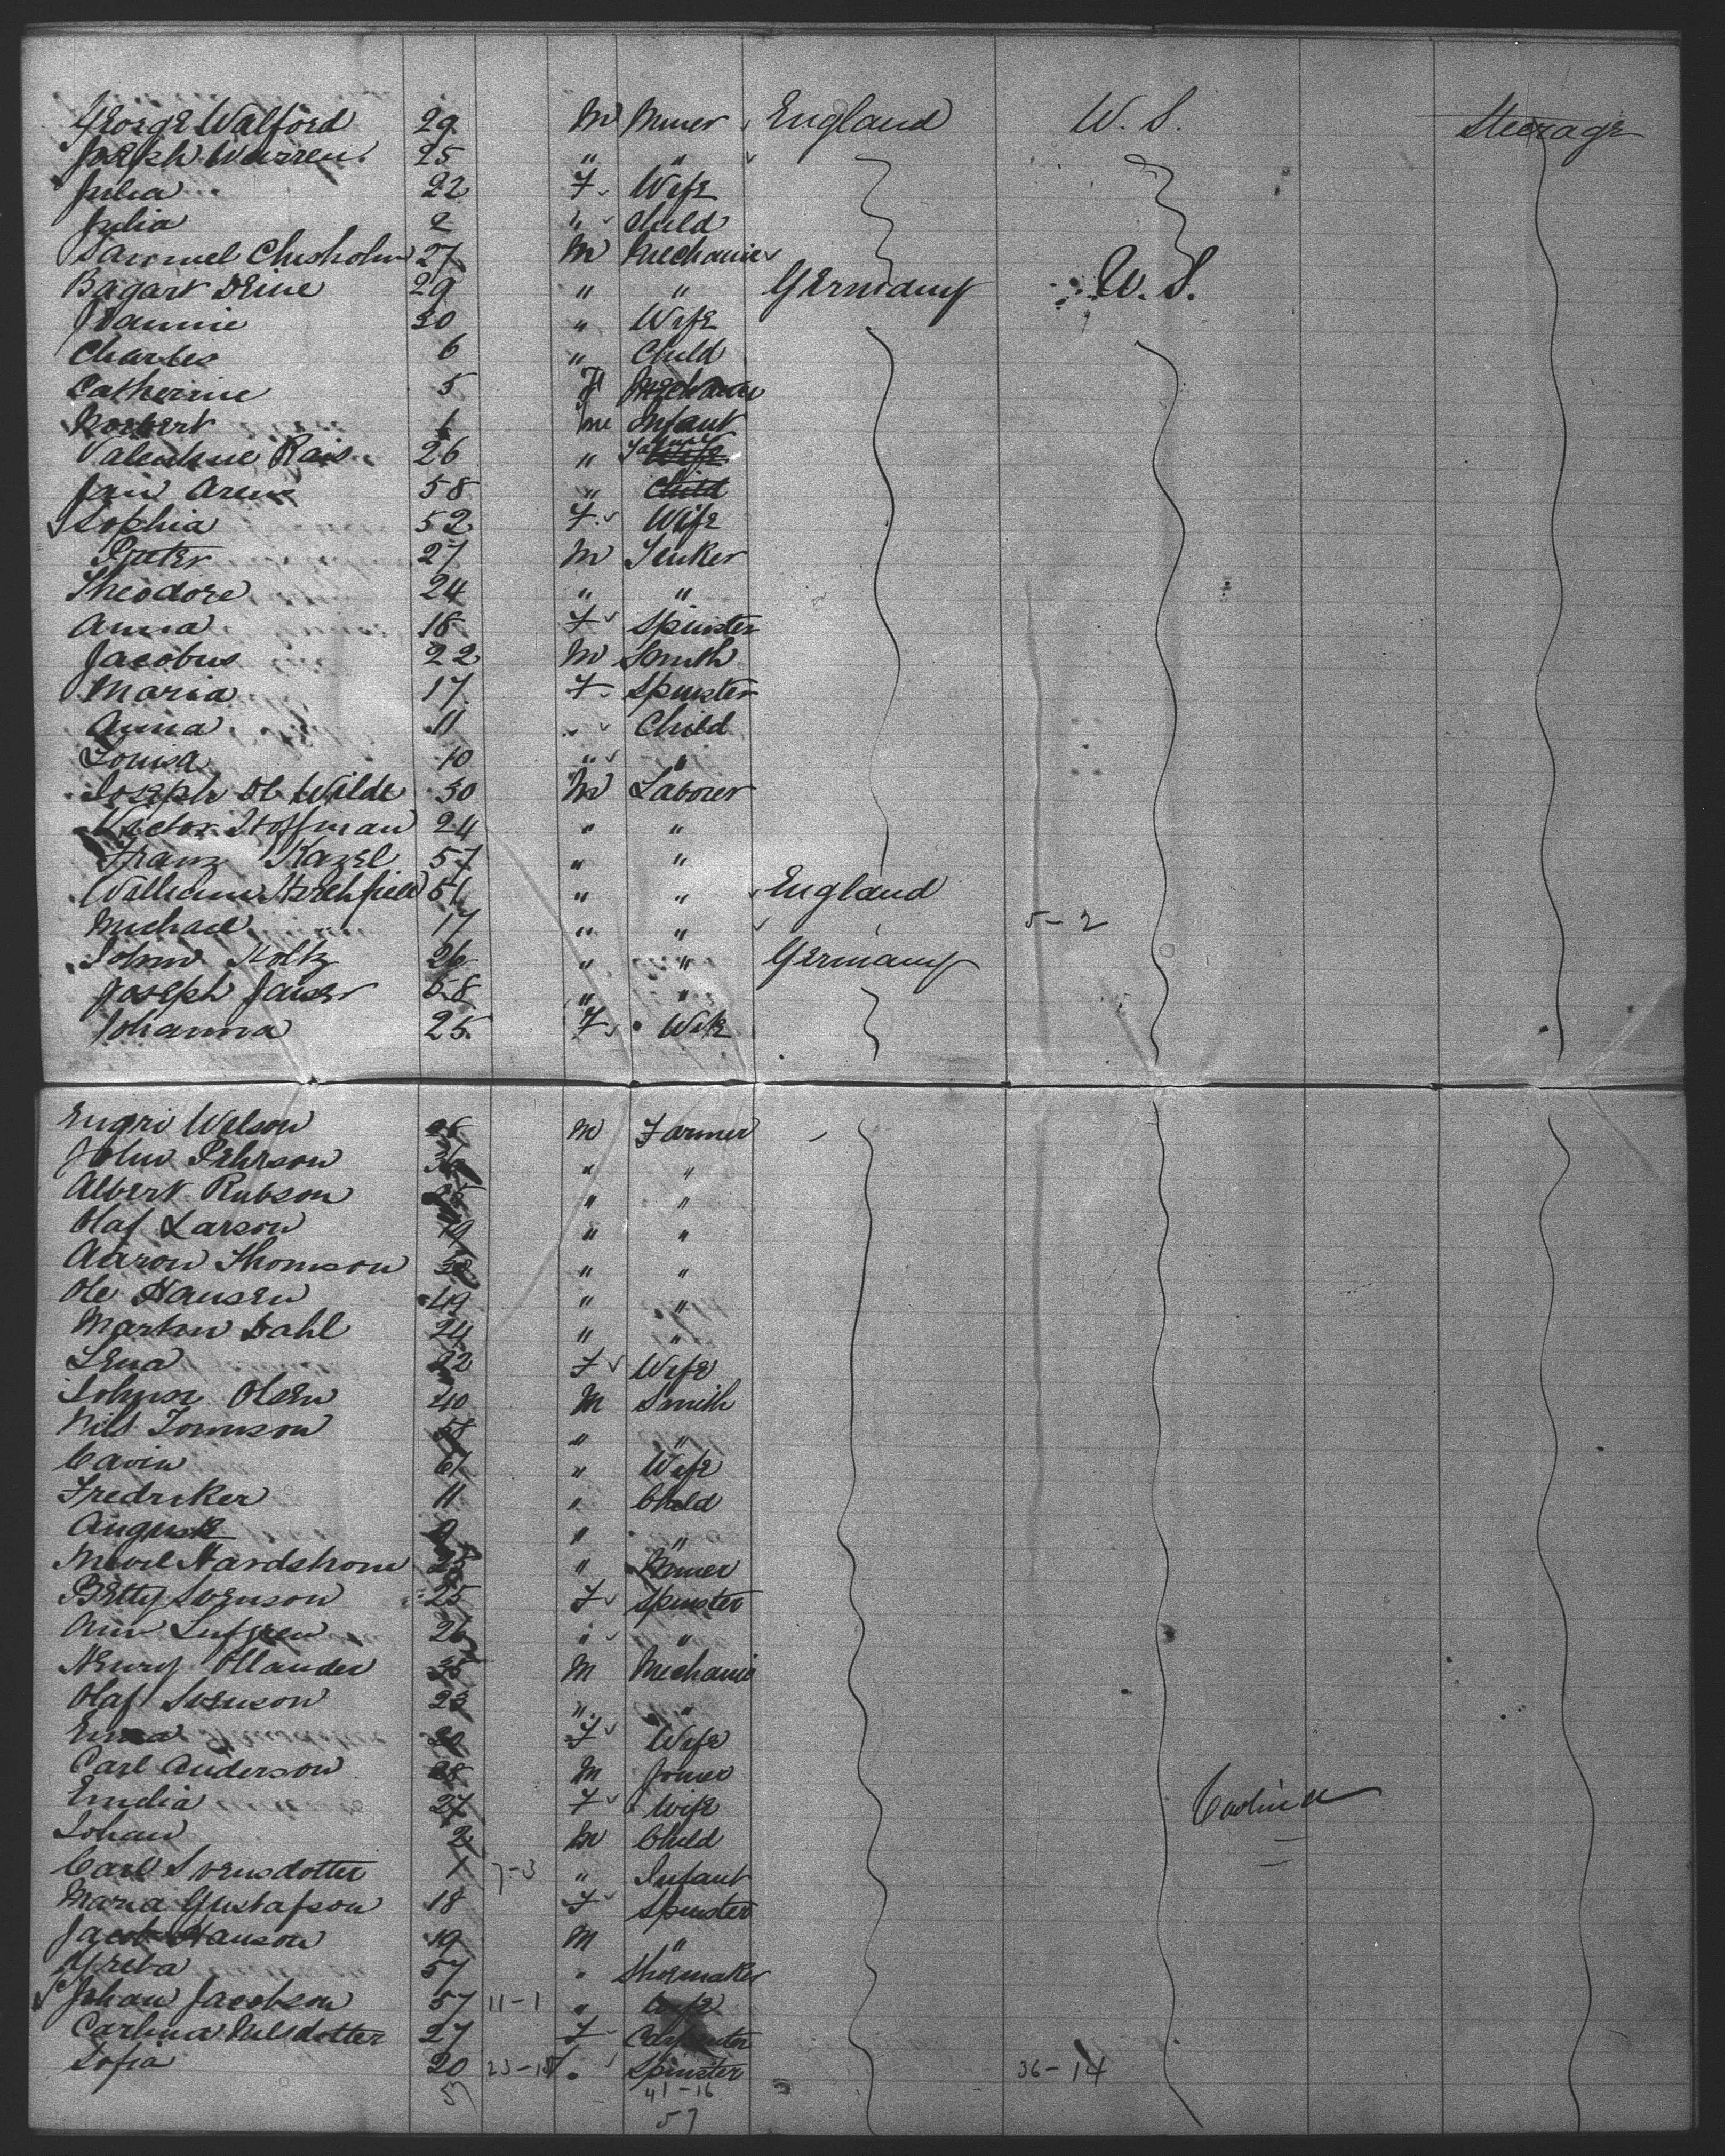 George Walford 29 M Miner England W. S. Steerage
Joseph Warren 25 " "
Julia 22 F Wife
Julia 2 " Child
Samuel Chisholm 27 M Mechanic
Bagart Deine 29 " " Germany W. S.
Jeannie 30 " Wife
Charles 6 " Child
Catherine 5 F
Norbert 1 m Infant
Valentine Rais 26 " Wife
Jan Arens 58 " Child
Sophia 52 F Wife
Pieter 27 M Tinker
Theodore 24 " "
Anna 18 F Spinster
Jacobus 22 M Smith
Maria 17 F Spinster
Anna 11 " Child
Louisa 10 " "
Joseph De Wilde 30 M Laborer
Victor Hoffman 24 " "
Franz Kazel 57 " "
William Hirchfield 51 " " England
Michael 17 " " 5-2
John Holtz 26 " " Germany
Joseph Jaiser 58 " "
Johanna 25 F Wife
Engri Wilson 26 M Farmer
John Pehrson " "
Albert Rubson " "
Olaf Larson 19 " "
Aaron Thomson " "
Ole Hansen 49 " "
Martin Dahl 24 " "
Lena 22 F Wife
Johnor Olsen 40 M Smith
Nils Tonnson 58 " "
Cavin 61 " Wife
Fredriker 11 " Child
August 9 " "
Nardstrom 25 " Miner
Betty Svenson 25 F Spinster
Ann Lufgren 26 " "
Henry Ollander 35 M Mechanic
Olaf Svenson 23 " "
Emma 20 F Wife
Carl Anderson 28 M Joiner
Emelia 27 F Wife Carolina
Johan 2 M Child
Carl Svensdotter 1 7-3 " Infant
Maria Gustafson 18 F Spinster
Jacob Hanson 19 M "
Greta 57 " Shoemaker
Johan Jacobson 57 11-1 " Wife
Carlina Nilsdotter 27 F Carpenter
Sofia 20 23-15 " Spinster 36-14
57 41-16
57